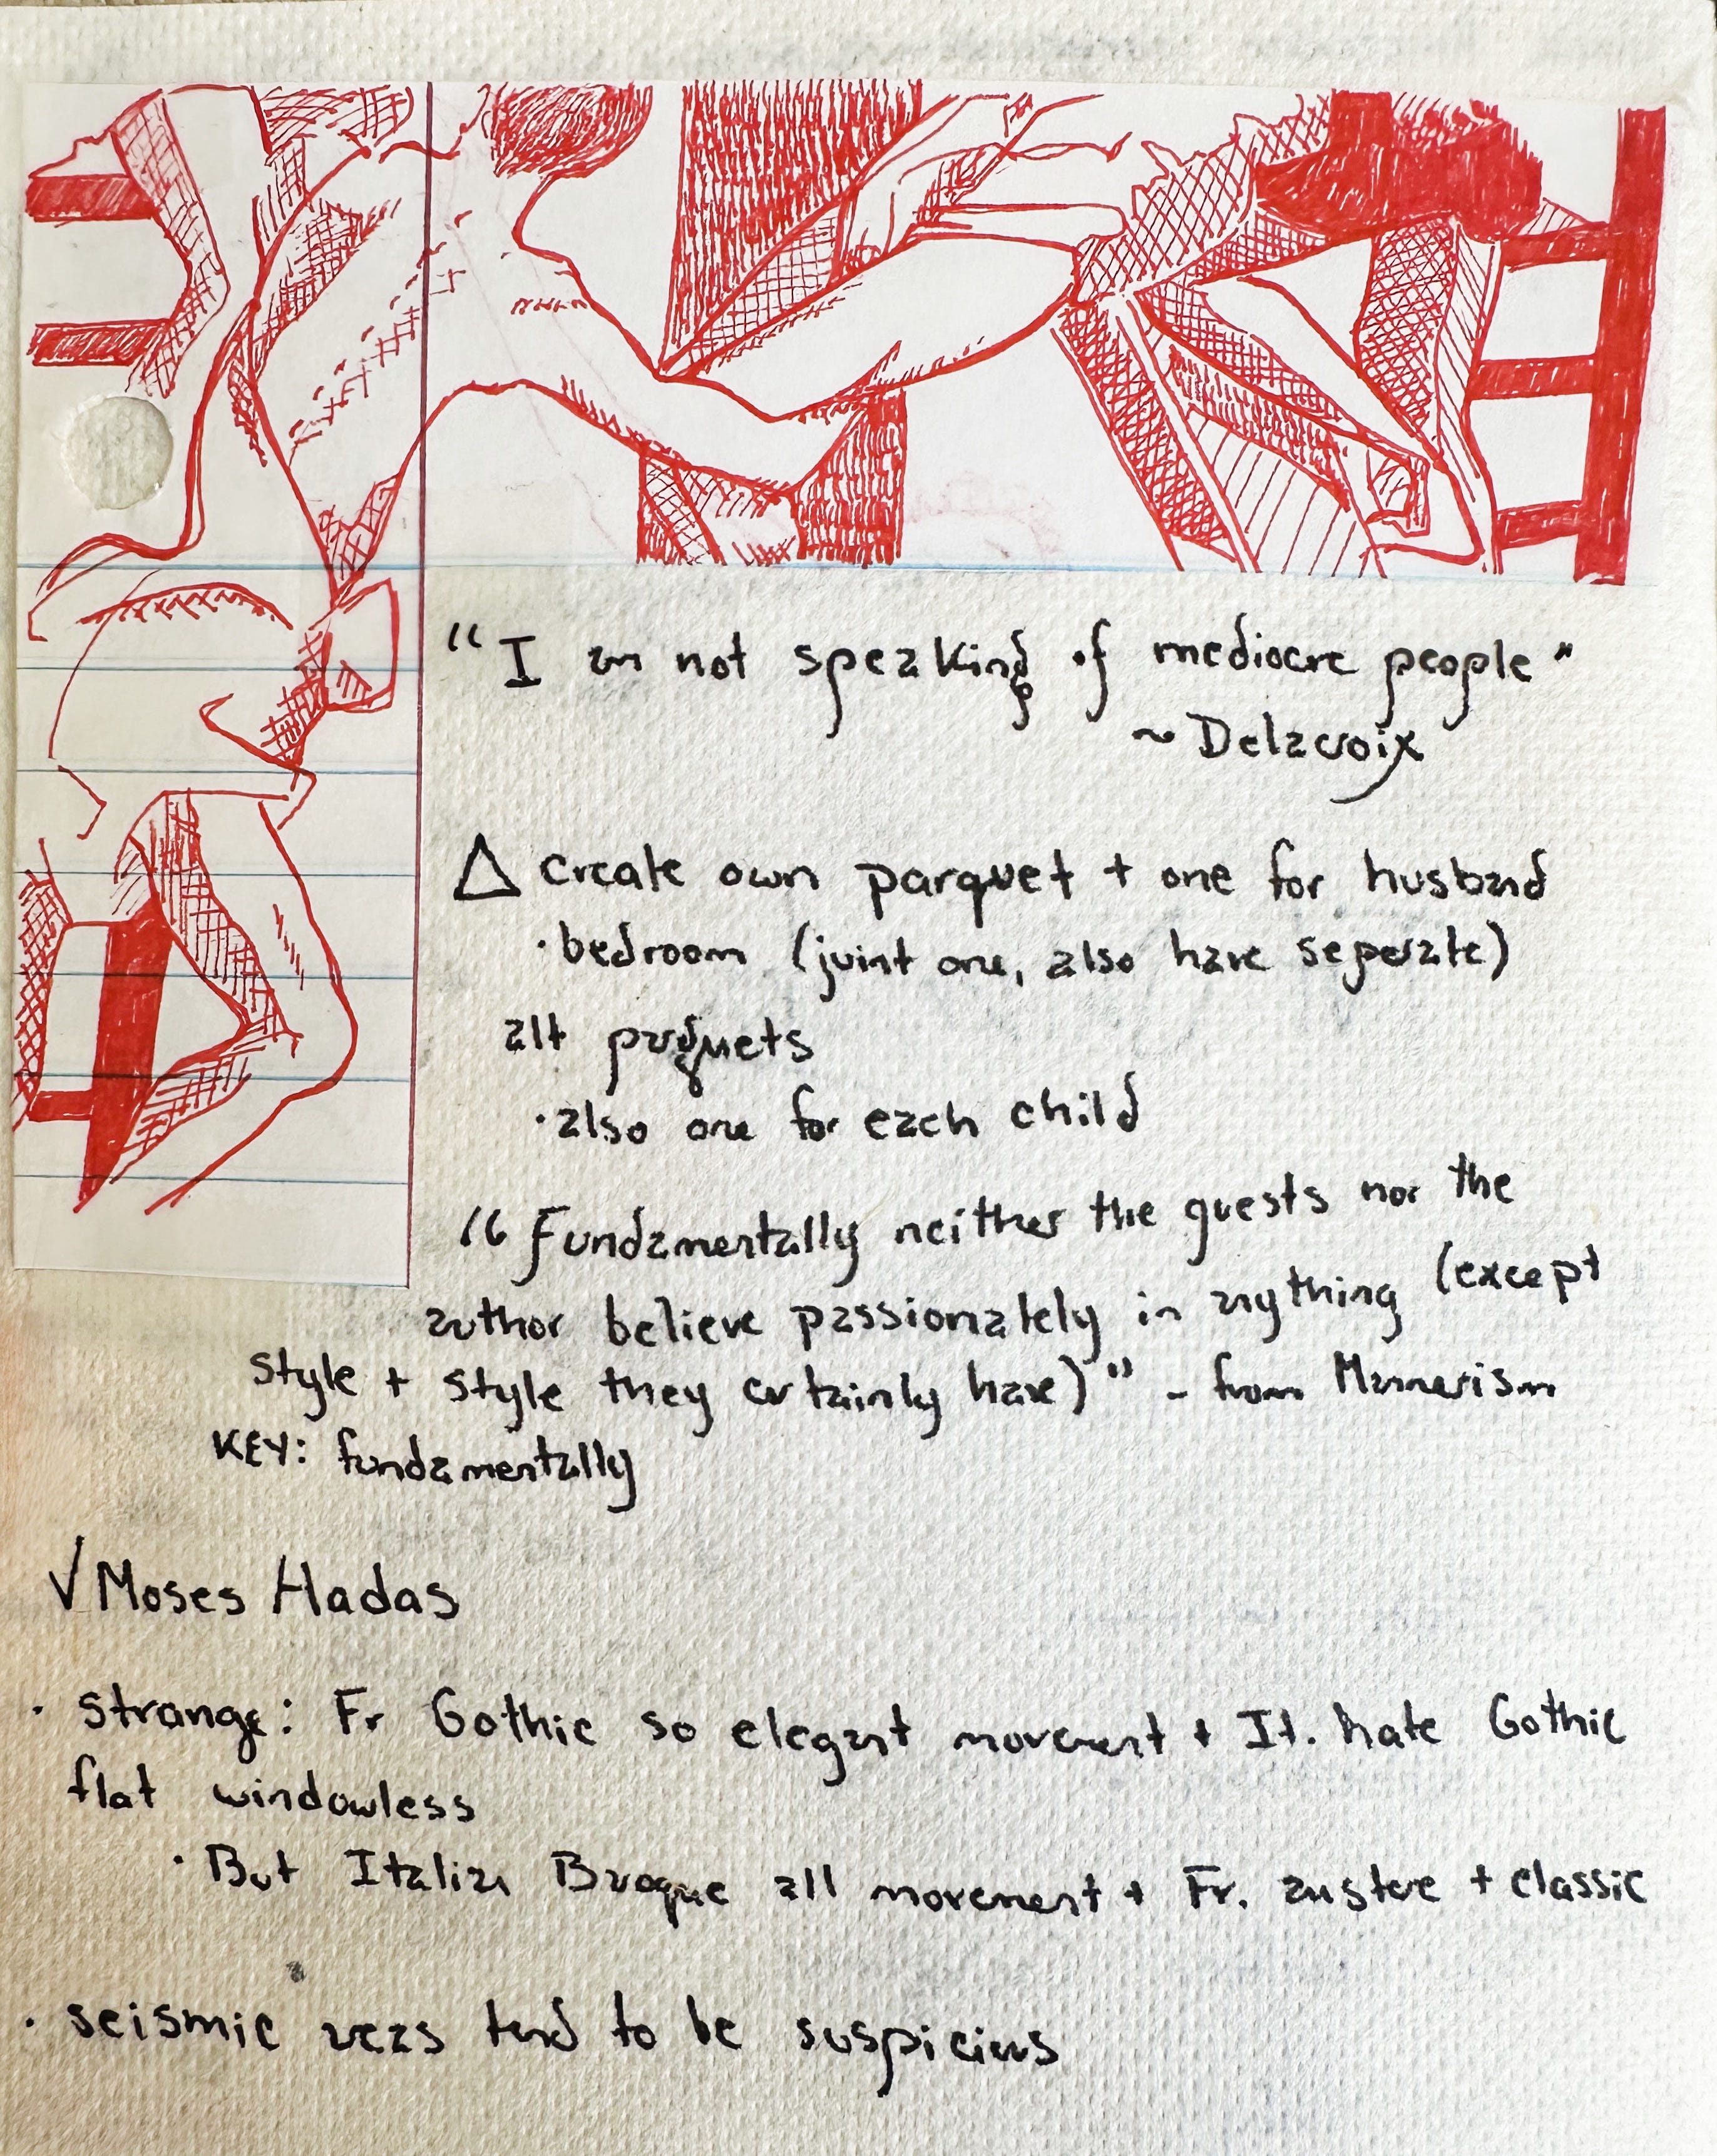 "I am not speaking of mediocre people"
~ Delacroix
Δ create own parquet + one for husband
· bedroom (joint one, also have seperate)
alt parquets
· also one for each child
"Fundamentally neither the guests nor the
author believe passionately in anything (except
style + style they certainly have)" - from Mannerism
KEY: fundamentally
√ Moses Hadas
· strange: Fr Gothic so elegant movement + It. hate Gothic
flat windowless
· But Italian Baroque all movement + Fr. austere + classic
· seismic areas tend to be suspicious